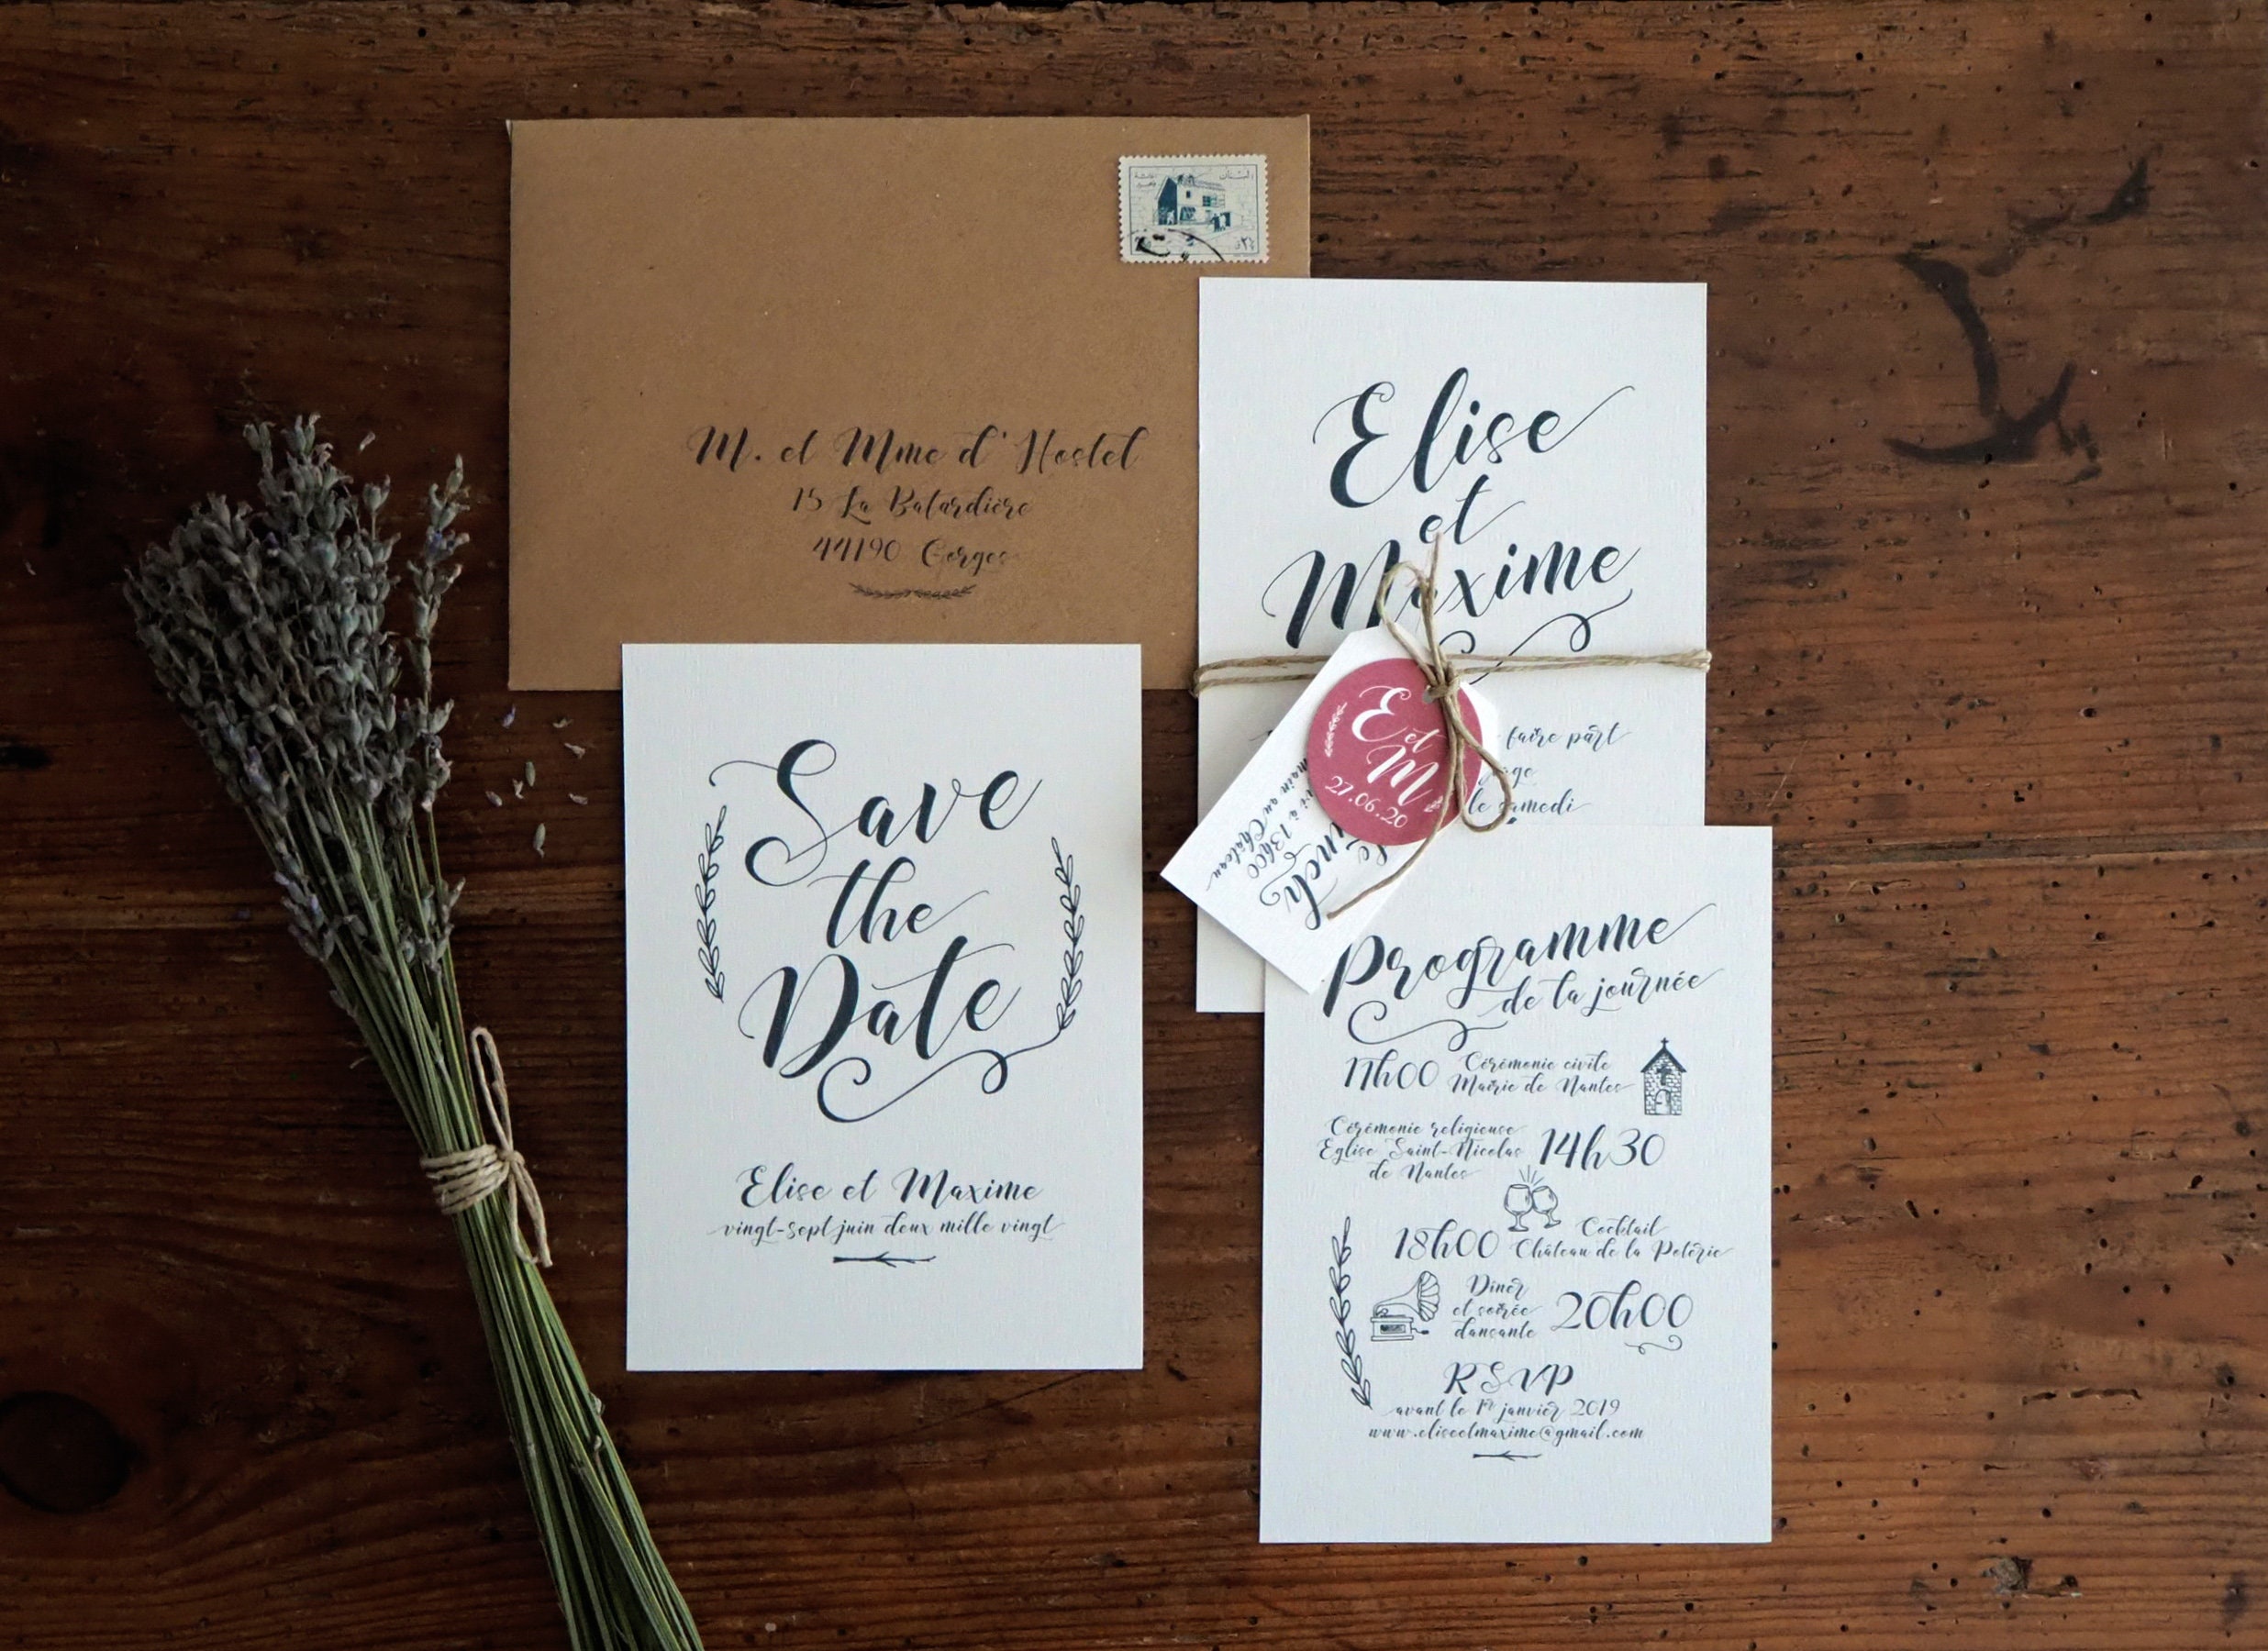 M. et Mme d'Hostel
15 La Batardière
44190 Gorges
Elise
et
Maxime
faire part
le samedi
E et
M
27.06.20
à 13h00
au Château
Save
the
Date
Elise et Maxime
vingt-sept juin deux mille vingt
Programme
de la journée
11h00 Cérémonie civile
Mairie de Nantes
Cérémonie religieuse
Eglise Saint-Nicolas 14h30
de Nantes
18h00 Cocktail
Château de la Poterie
Dîner
et soirée 20h00
dansante
RSVP
avant le 1er janvier 2019
www.eliseetmaxime@gmail.com